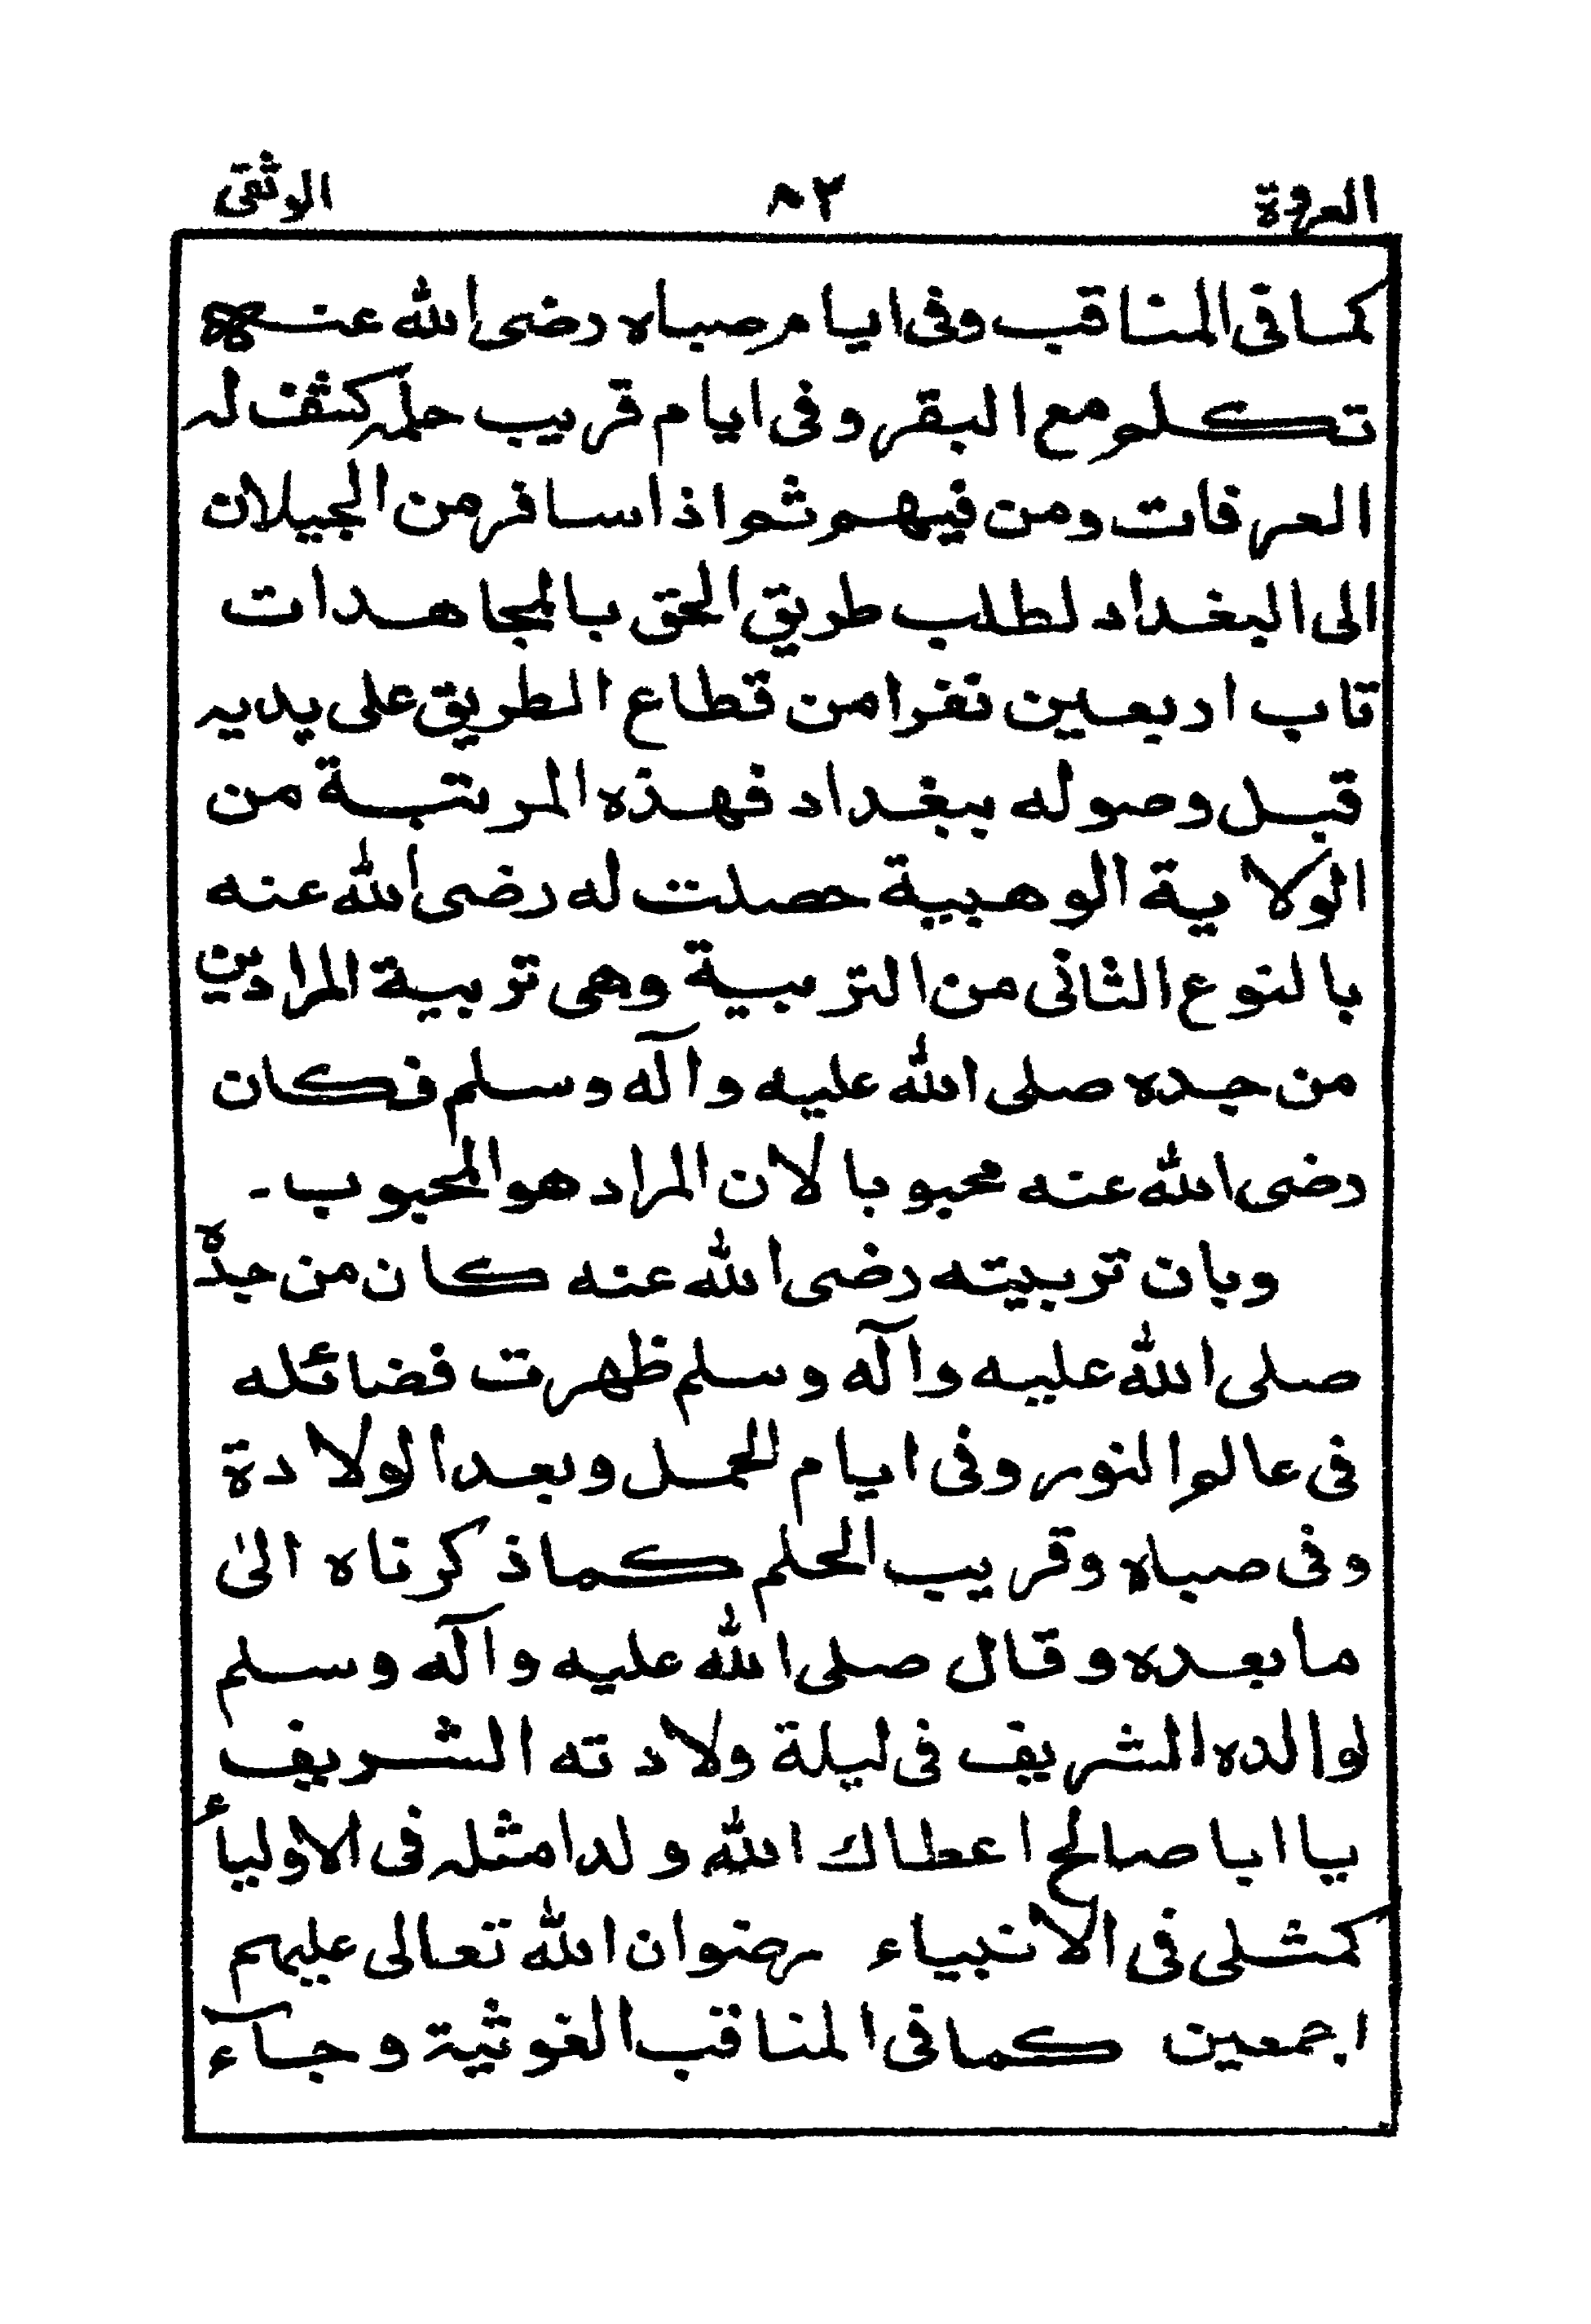 العروة ٨٢ الوثقى
كما فى المناقب وفى ايام صباه رضى الله عنه
تكلم مع البقر وفى ايام قريب حلمه كشف له
العرفات ومن فيهم ثم اذا سافر من الجيلان
الى البغداد لطلب طريق الحق بالمجاهدات
تاب اربعين نفرا من قطاع الطريق على يديه
قبل وصوله ببغداد فهذه المرتبة من
الولاية الوهبية حصلت له رضى الله عنه
بالنوع الثانى من التربية وهى تربية المرادين
من جده صلى الله عليه وآله وسلم فكان
رضى الله عنه محبوبا لان المراد هو المحبوب ۔
وبان تربيته رضى الله عنه كان من جدّه
صلى الله عليه وآله وسلم ظهرت فضائله
فى عالم النور وفى ايام الحمل وبعد الولادة
وفى صباه وقريب الحلم كما ذكرناه الىٰ
ما بعده وقال صلى الله عليه وآله وسلم
لوالده الشريف فى ليلة ولادته الشريف
يا ابا صالح اعطاك الله ولدا مثله فى الاولياء
كمثلى فى الانبياء رضوان الله تعالى عليهم
اجمعين كما فى المناقب الغوثية وجآء